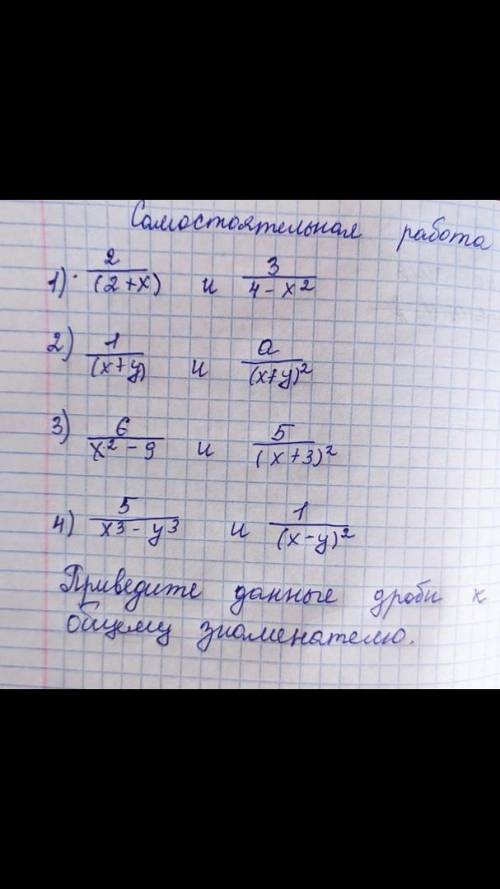 Самостоятельная работа
1) 2/(2+x) и 3/(4-x²)
2) 1/(x+y) и a/(x+y)²
3) 6/(x²-9) и 5/(x+3)²
4) 5/(x³-y³) и 1/(x-y)²
Приведите данные дроби к
общему знаменателю.